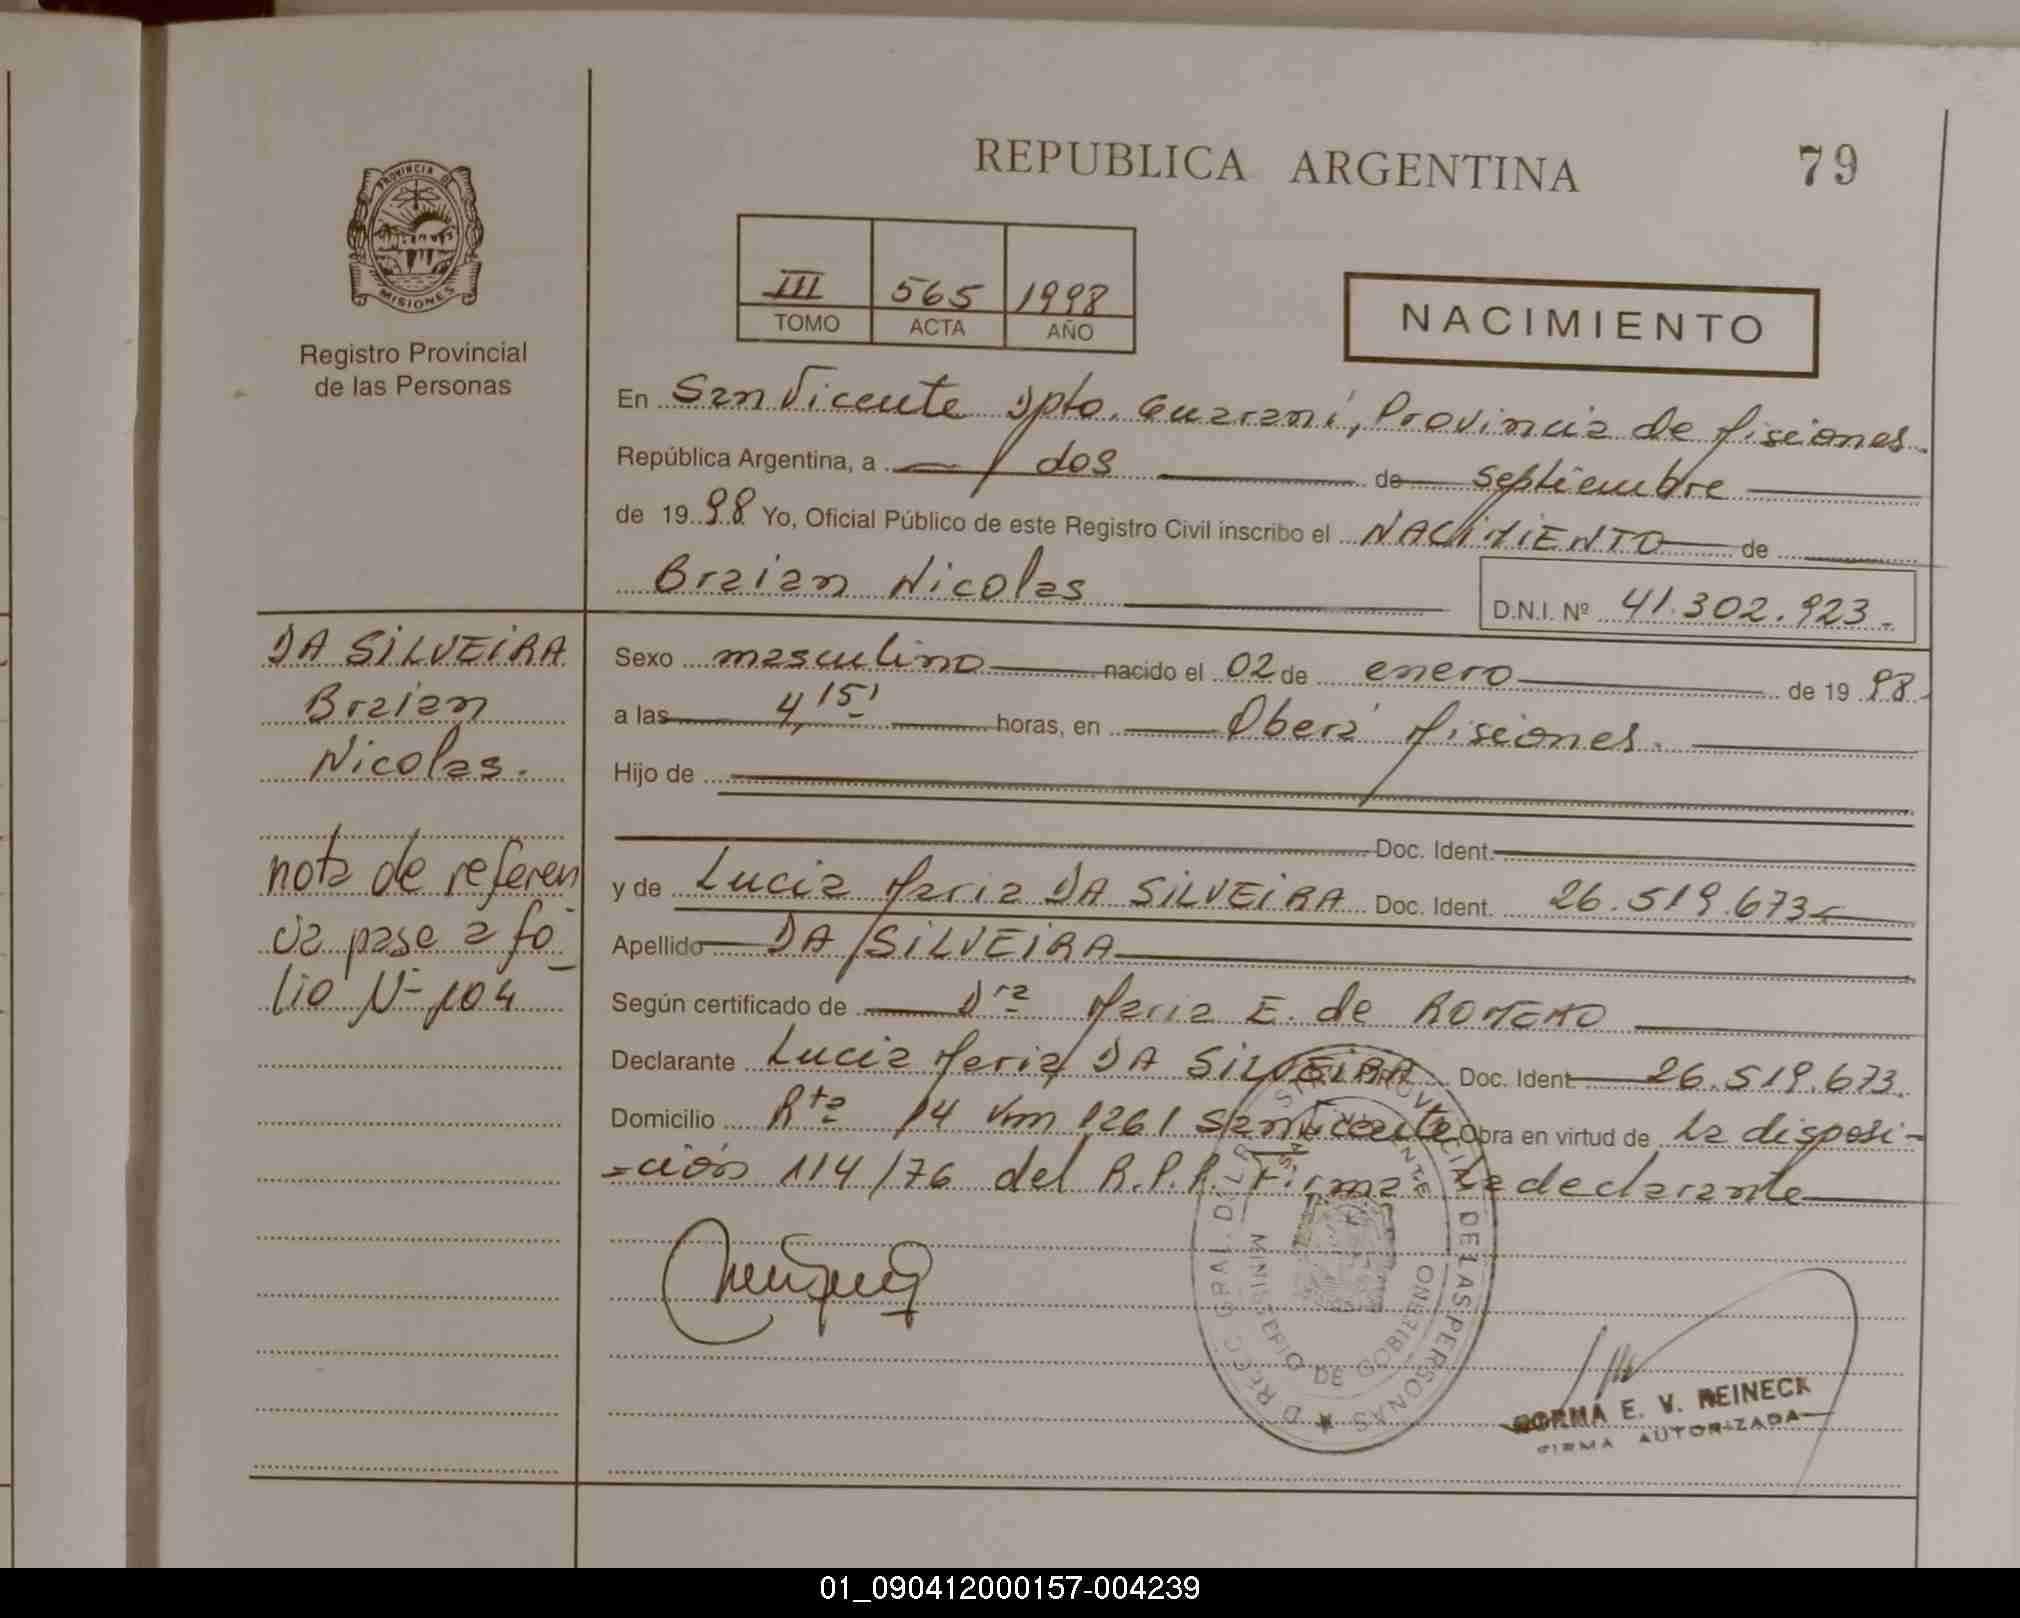 REPUBLICA ARGENTINA
79
PROVINCIA DE
MISIONES
Registro Provincial
de las Personas
III 565 1998
TOMO ACTA AÑO
NACIMIENTO
En San Vicente Dpto. Guarani, Provincia de Misiones.
República Argentina, a dos de septiembre
de 1998 Yo, Oficial Público de este Registro Civil inscribo el NACIMIENTO de
Braian Nicolas D.N.I. Nº 41.302.923.
DA SILVEIRA
Braian
Nicolas.
nota de referen
cia pase a fo
lio Nº 104
Sexo masculino nacido el 02 de enero de 1998.
a las 4,15' horas, en Oberá Misiones.
Hijo de
Doc. Ident.
y de Lucia Maria DA SILVEIRA Doc. Ident. 26.519.673
Apellido DA SILVEIRA
Según certificado de Dra Maria E. de ROMERO
Declarante Lucia Maria DA SILVEIRA Doc. Ident 26.519.673.
Domicilio Rta 14 Km 1261 San Vicente Obra en virtud de la disposi-
=ción 114/76 del R.P.P. Firma la declarante
MINISTERIO DE GOBIERNO
DE LAS PERSONAS
NORMA E. V. REINECK
FIRMA AUTORIZADA
01_090412000157-004239